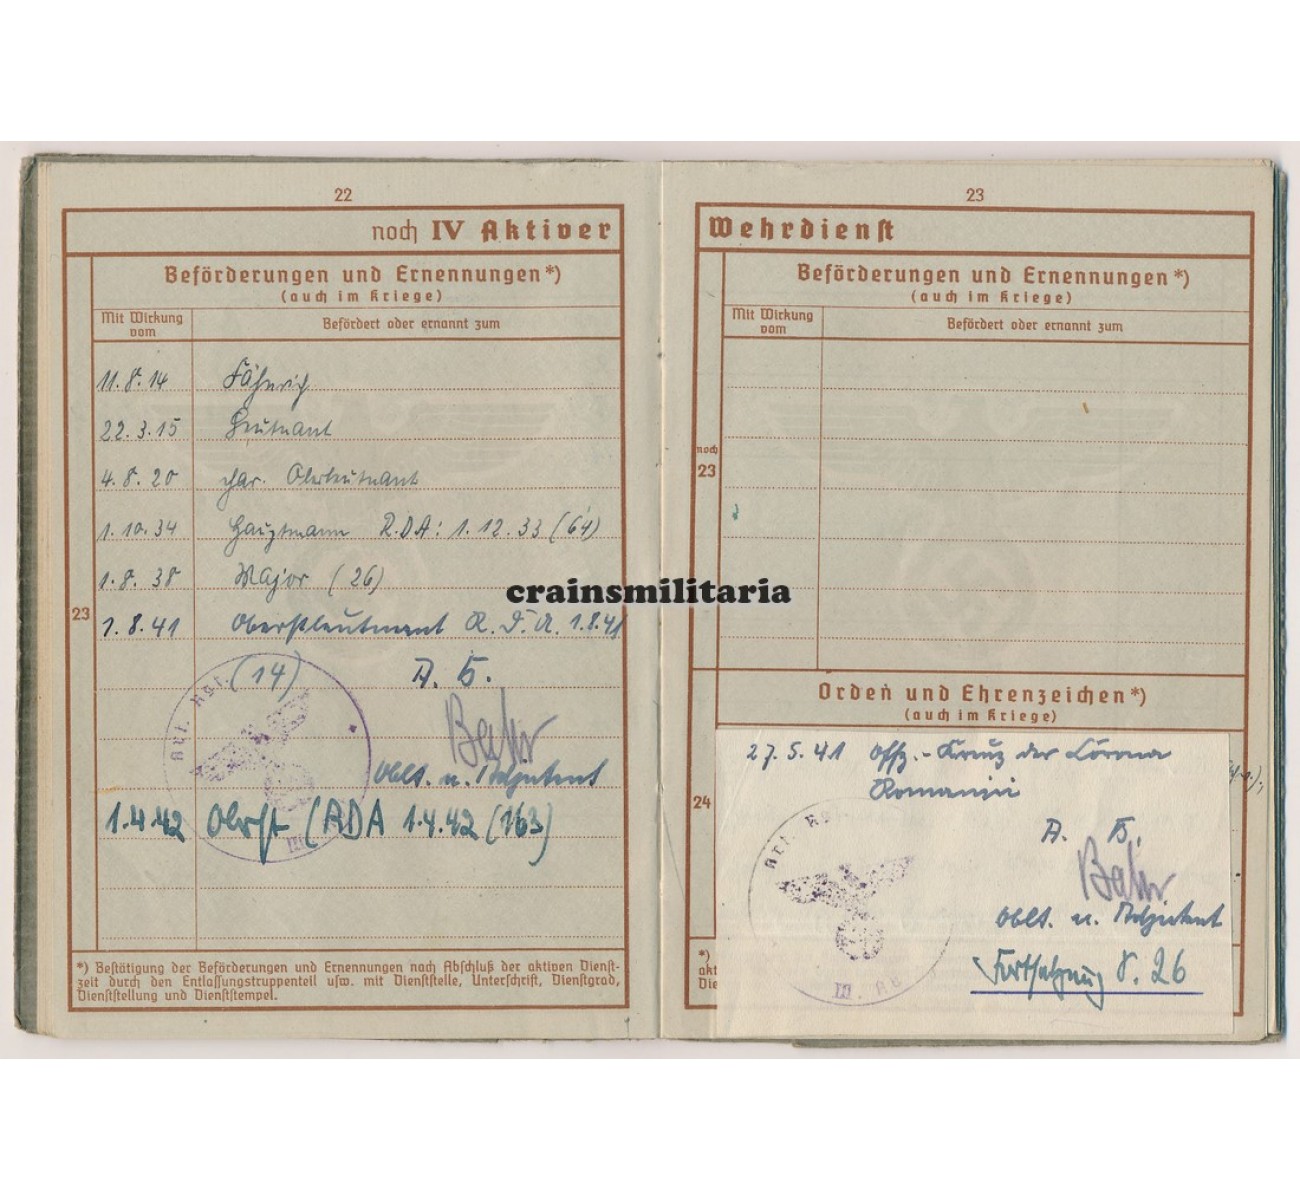 22
noch IV Aktiver
Beförderungen und Ernennungen*)
(auch im Kriege)
Mit Wirkung vom
Befördert oder ernannt zum
11.8.14 Fähnrich
22.3.15 Leutnant
4.8.20 char. Oberleutnant
1.10.34 Hauptmann R.D.A: 1.12.33 (64)
1.8.38 Major (26)
23
1.8.41 Oberstleutnant R.D.A. 1.8.41
(14) A. B.
Bahr
Oblt. u. Adjutant
1.4.42 Oberst (RDA 1.4.42 (163)
*) Bestätigung der Beförderungen und Ernennungen nach Abschluß der aktiven Dienst-
zeit durch den Entlassungstruppenteil usw. mit Dienststelle, Unterschrift, Dienstgrad,
Dienststellung und Dienststempel.
23
Wehrdienst
Beförderungen und Ernennungen*)
(auch im Kriege)
Mit Wirkung vom
Befördert oder ernannt zum
noch
23
Orden und Ehrenzeichen*)
(auch im Kriege)
27.5.41 Offz.-Kreuz der Corona
Romaniei
24
A. B.
Bahr
Oblt. u. Adjutant
Fortsetzung S. 26
*)
akt
Die
III.
crainsmilitaria